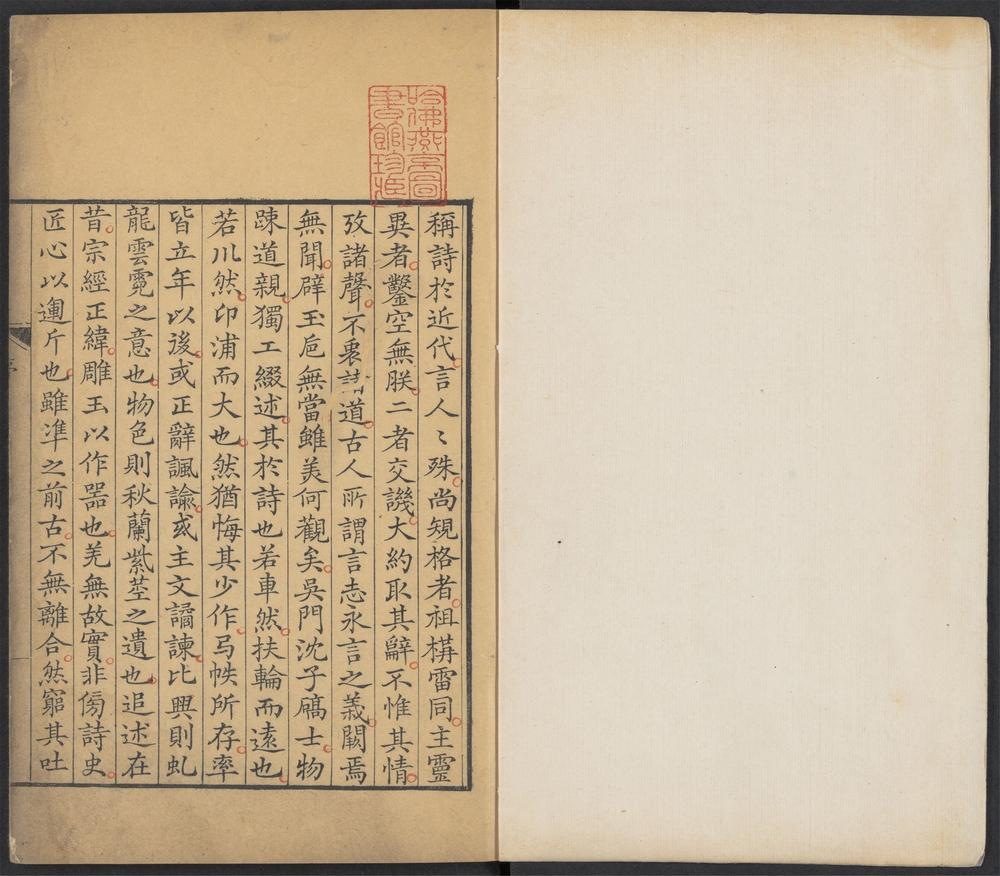 哈佛燕京圖
書館珍藏
稱詩於近代言人〻殊尚規格者祖構雷同主靈
異者鑿空無朕二者交譏大約取其辭不惟其情
攷諸聲不衷諸道古人所謂言志永言之義闕焉
無聞辟玉卮無當雖美何觀矣吳門沈子礄士物
踈道親獨工綴述其於詩也若車然扶輪而遠也
若川然印浦而大也然猶悔其少作弓帙所存率
皆立年以後或正辭諷諭或主文譎諫比興則虬
龍雲霓之意也物色則秋蘭紫莖之遺也追述在
昔宗經正緯雕玉以作噐也羌無故實非傍詩史
匠心以運斤也雖準之前古不無離合然窮其吐